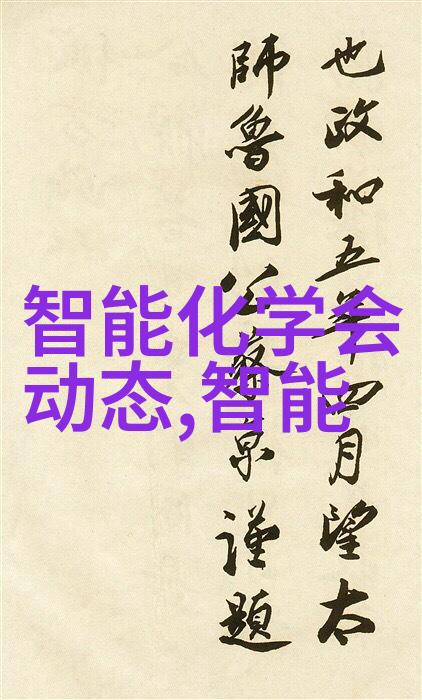 也政和五年四月望太
師魯國公蔡京謹題
智能化学会
动态,智能